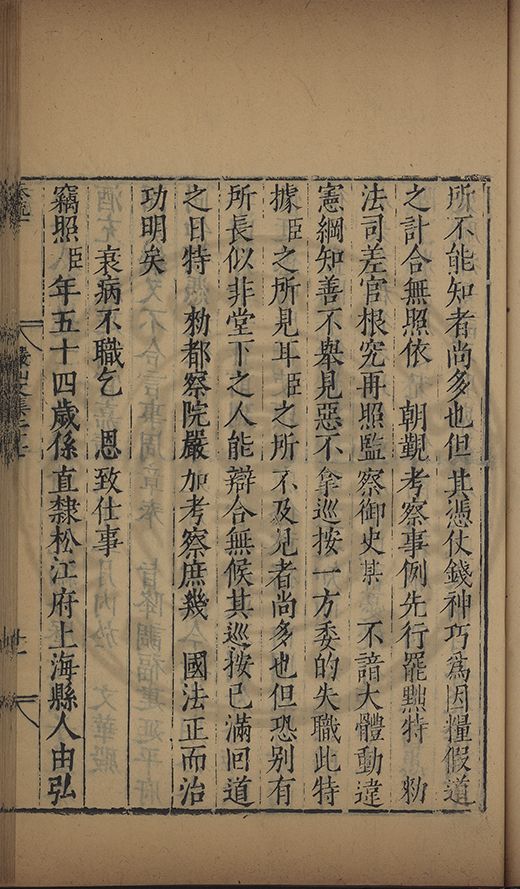 所不能知者尚多也但其憑仗錢神巧爲因糧假道
之計合無照依　朝覲考察事例先行罷黜特　勑
法司差官根究再照監察御史某　不諳大體動違
憲綱知善不舉見惡不拿巡按一方委的失職此特
據臣之所見耳臣之所不及見者尚多也但恐別有
所長似非堂下之人能辯合無候其巡按已滿回道
之日特　勑都察院嚴加考察庶幾　國法正而治
功明矣
衰病不職乞　恩致仕事
竊照臣年五十四歲係直隸松江府上海縣人由弘